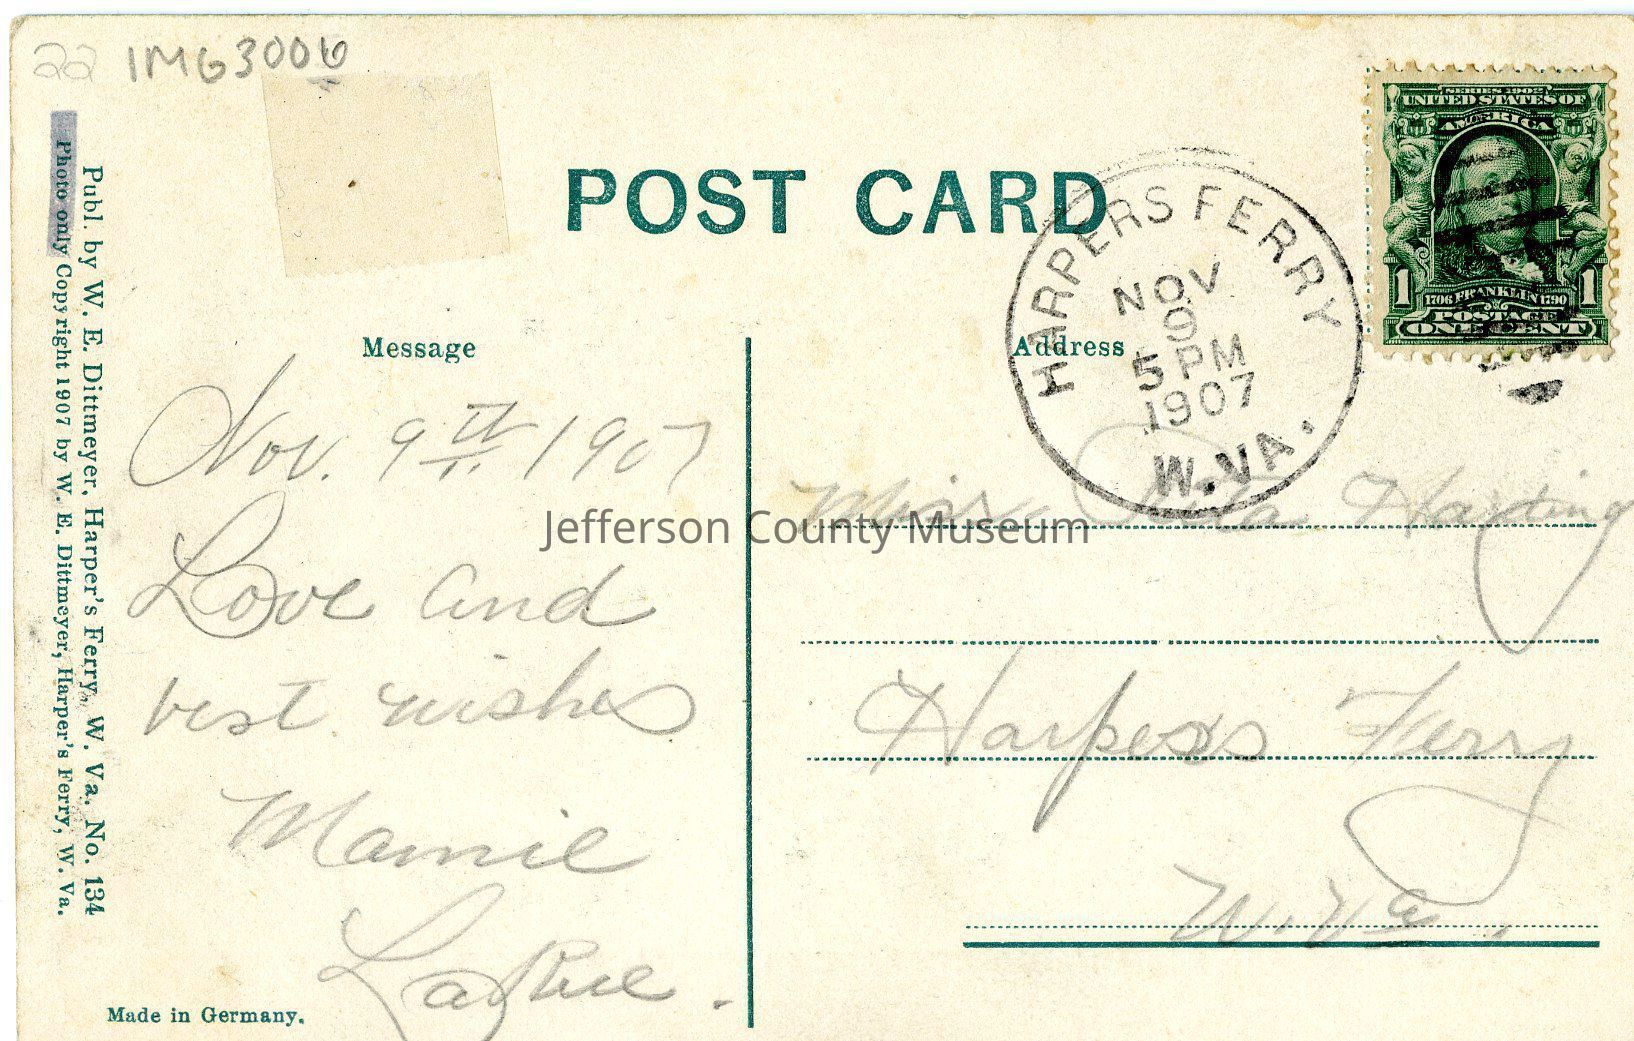 22 IMG3006
Publ. by W. E. Dittmeyer, Harper's Ferry, W. Va. No. 134
Photo only Copyright 1907 by W. E. Dittmeyer, Harper's Ferry, W. Va.
POST CARD
SERIES 1902
UNITED STATES OF
AMERICA
1 1706 FRANKLIN 1790 1
POSTAGE
ONE CENT
HARPERS FERRY
NOV
9
5 PM
1907
W. VA.
Message
Address
Nov. 9th 1907
Love and
best wishes
Mamie
LaRue.
Miss Harding
Harpers Ferry
W. Va.
Jefferson County Museum
Made in Germany.